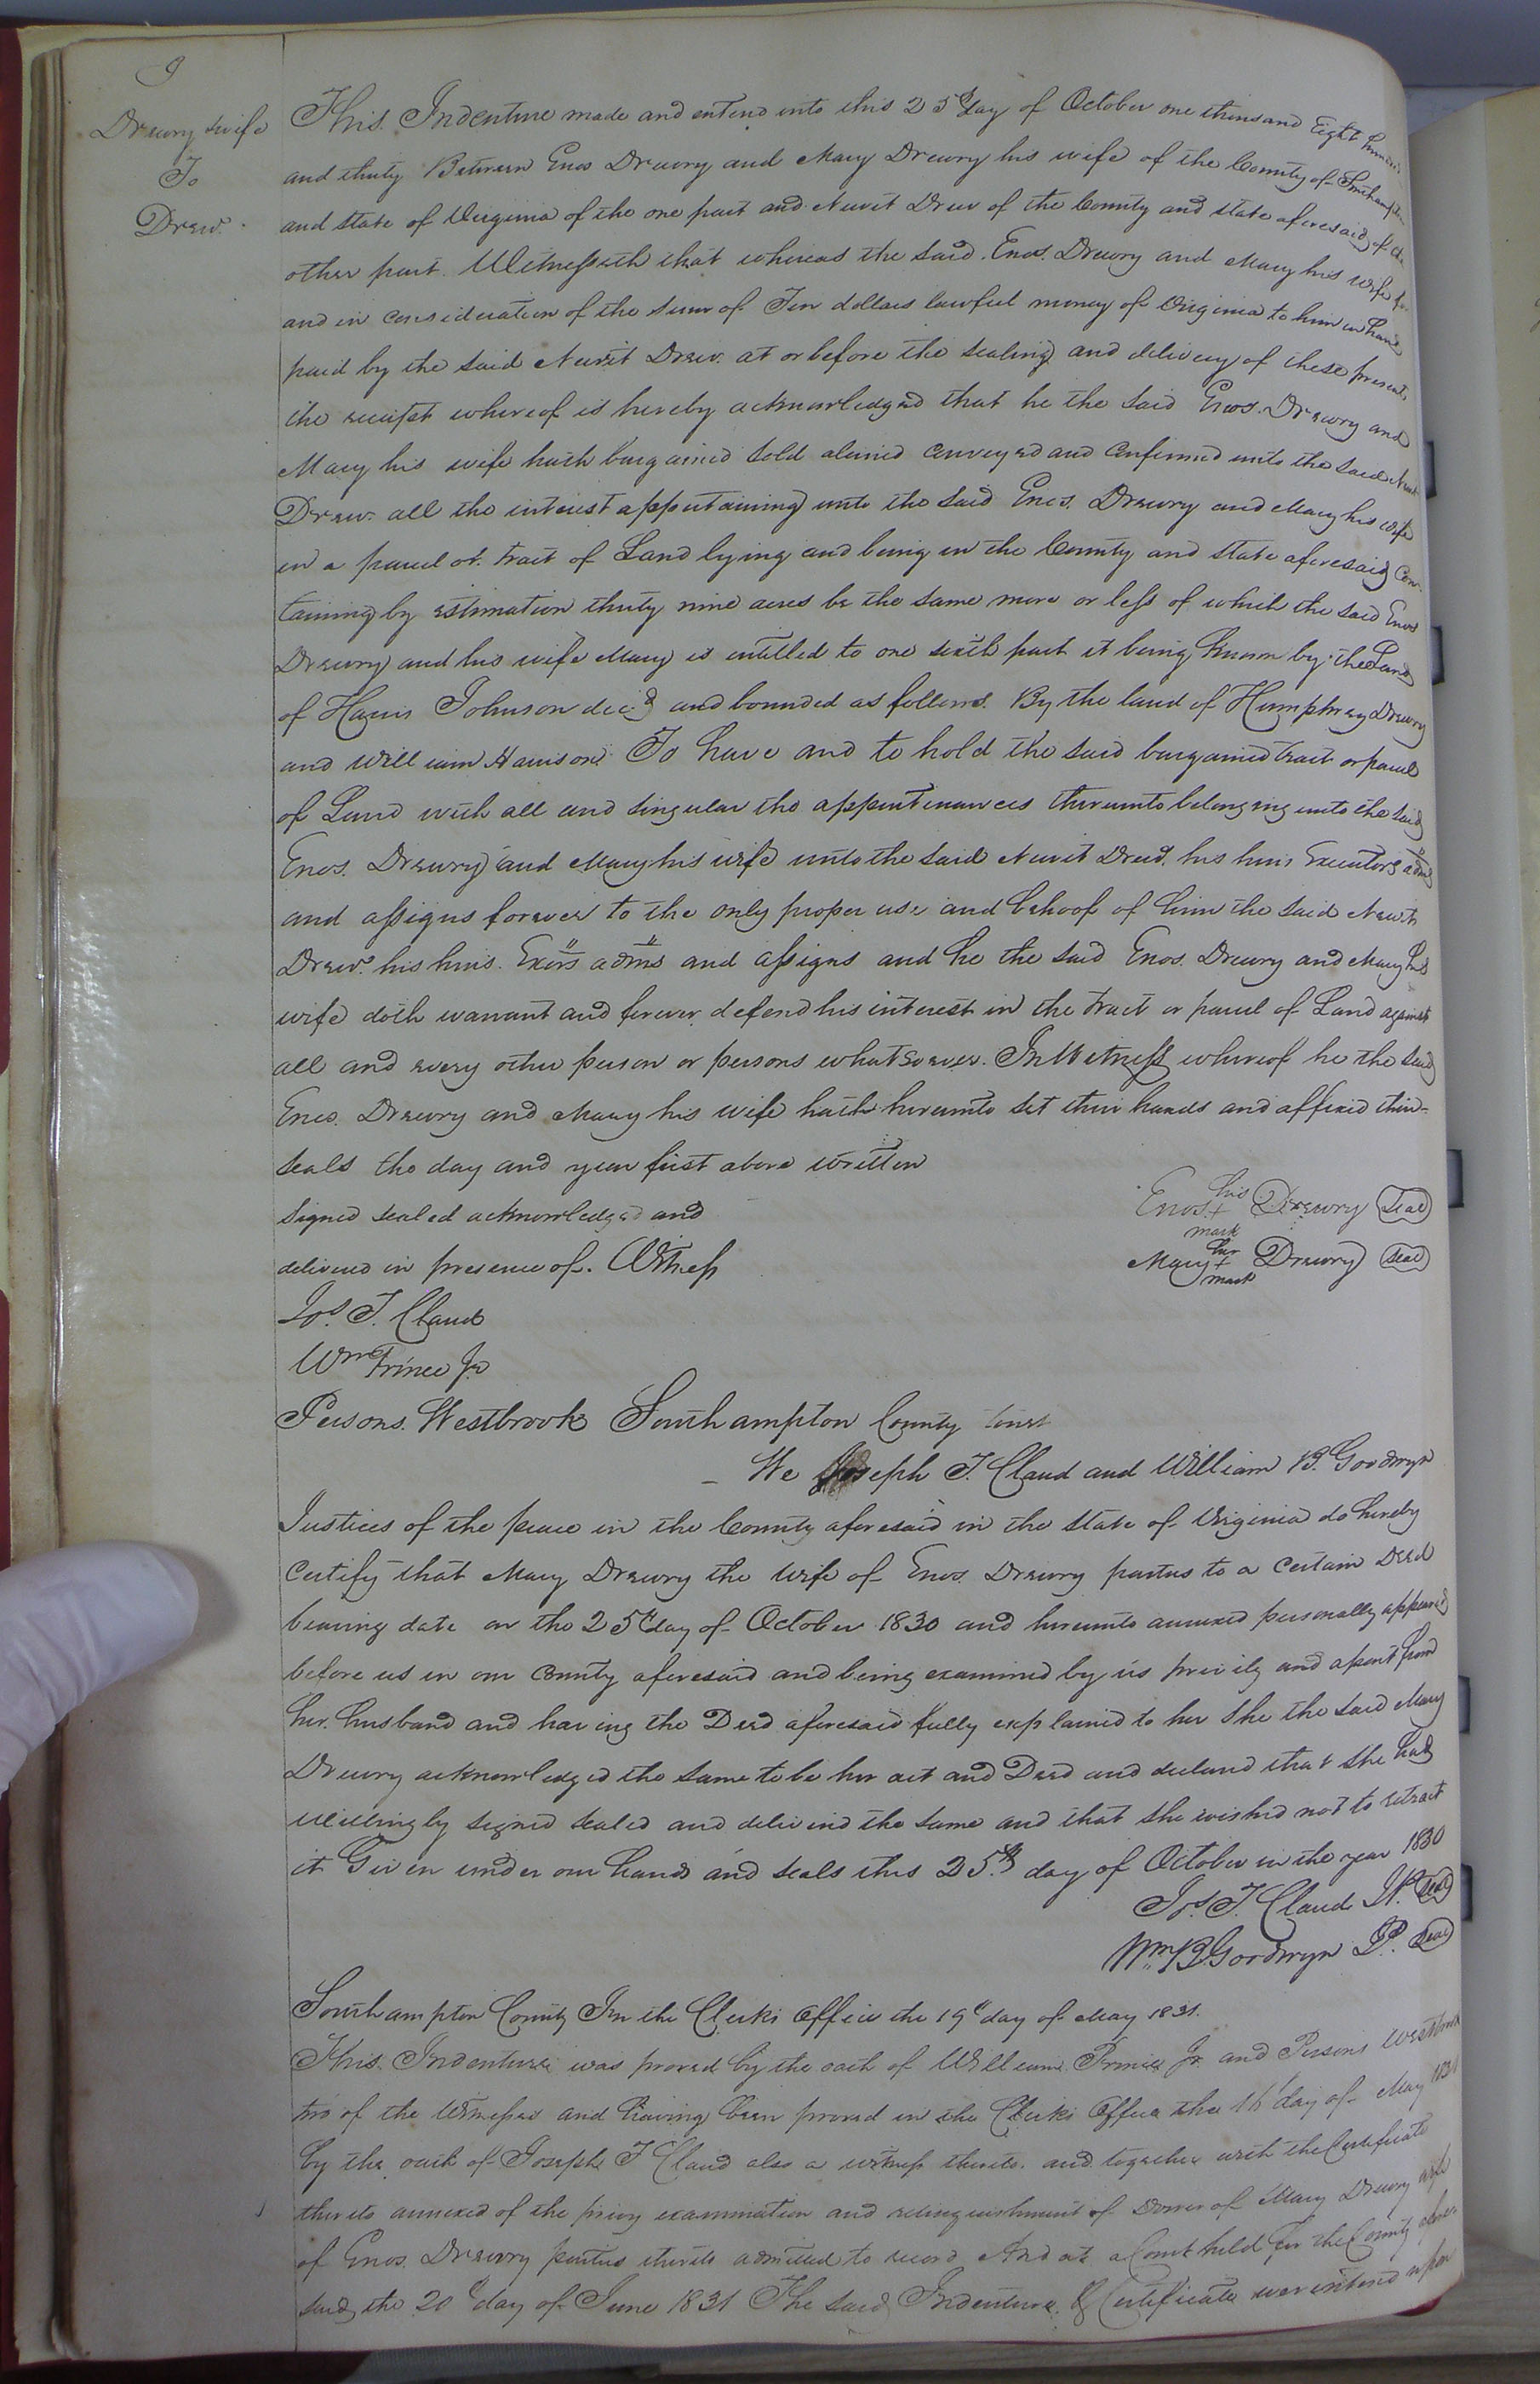 9
Drewry & wife
To
Drew.
This Indenture made and entered into this 25th day of October one thousand Eight hundred
and thirty Between Enos Drewry and Mary Drewry his wife of the County of Southampton
and state of Virginia of the one part and Newit Drew of the County and state aforesaid of the
other part. Witnesseth that whereas the said Enos. Drewry and Mary his wife for
and in consideration of the sum of Ten dollars lawful money of Virginia to him in hand
paid by the said Newit Drew. at or before the sealing and delivery of these presents,
the receipt whereof is hereby acknowledged that he the said Enos. Drewry and
Mary his wife hath bargained sold aliened conveyed and confirmed unto the said Newit
Drew. all the interest appertaining unto the said Enos. Drewry and Mary his wife
in a parcel or tract of Land lying and being in the County and state aforesaid Con-
taining by estimation thirty nine acres be the same more or less of which the said Enos
Drewry and his wife Mary is entitled to one sixth part it being known by the Land
of Harris Johnson decd and bounded as follows. By the land of Humphrey Drewry
and William Harrison. To have and to hold the said bargained tract or parcel
of Land with all and singular the appurtenances thereunto belonging unto the said
Enos. Drewry and Mary his wife unto the said Newit Drew. his heirs Executors adms
and assigns forever to the only proper use and behoof of him the said Newit
Drew. his heirs. Exors adms and assigns and he the said Enos. Drewry and Mary his
wife doth warrant and forever defend his interest in the tract or parcel of Land against
all and every other person or persons whatsoever. In Witness whereof he the said
Enos. Drewry and Mary his wife hath hereunto set their hands and affixed their
seals the day and year first above written
Signed sealed acknowledged and
delivered in presence of. Witness
Enos. his + mark Drewry Seal
Mary her + mark Drewry Seal
Jos. T. Claud
Wm Prince Jr
Persons. Westbrook Southampton County towit
We Joseph T. Claud and William B. Goodwyn
Justices of the peace in the County aforesaid in the state of Virginia do hereby
Certify that Mary Drewry the wife of Enos. Drewry parties to a certain Deed
bearing date on the 25th day of October 1830 and hereunto annexed personally appeared
before us in our County aforesaid and being examined by us privily and apart from
her. husband and having the Deed aforesaid fully explained to her She the said Mary
Drewry acknowledged the same to be her act and Deed and declared that she had
willingly signed sealed and delivered the same and that she wished not to retract
it Given under our hands and seals this 25th day of October in the year 1830
Jos. T. Claud JP. Seal
Wm. B Goodwyn JP. Seal
Southampton County In the Clerks Office the 19th day of May 1831.
This Indenture was proved by the oath of William Prince Jr. and Persons Westbrook
two of the Witnesses and having been proved in the Clerks Office the 16th day of May 1831
by the oath of Joseph T Claud also a witness thereto. and together with the Certificate
thereto annexed of the privy examination and relinquishment of Dower of Mary Drewry wife
of Enos. Drewry parties thereto admitted to record And at a Court held for the County afore-
said the 20th day of June 1831 The said Indenture & Certificate were entered upon